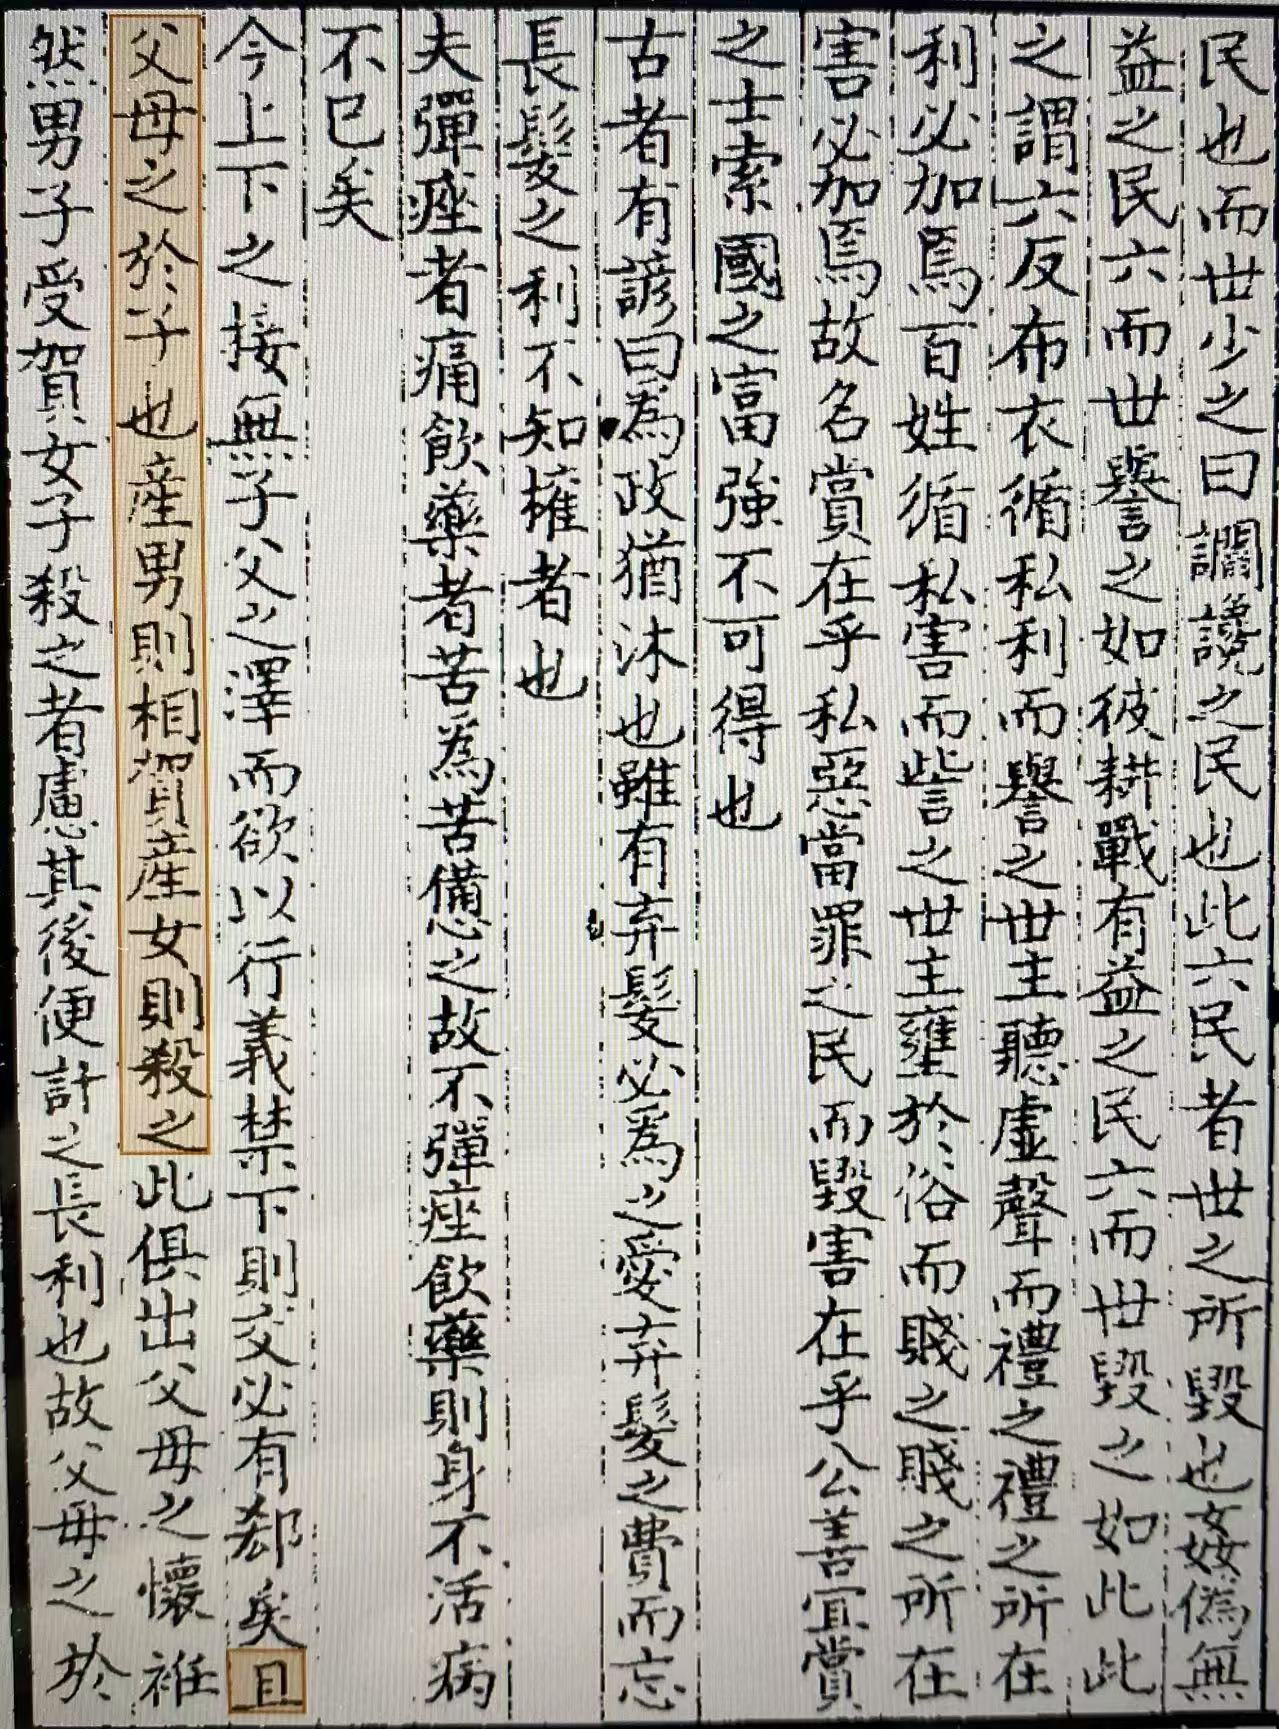 民也而世少之曰讇讒之民也此六民者世之所毀也姦偽無
益之民六而世譽之如彼耕戰有益之民六而世毀之如此此
之謂六反布衣循私利而譽之世主聽虛聲而禮之禮之所在
利必加焉百姓循私害而訾之世主壅於俗而賤之賤之所在
害必加焉故名賞在乎私惡當罪之民而毀害在乎公善宜賞
之士索國之富強不可得也
古者有諺曰為政猶沐也雖有弃髮必為之愛弃髮之費而忘
長髮之利不知權者也
夫彈痤者痛飲藥者苦為苦憊之故不彈痤飲藥則身不活病
不已矣
今上下之接無子父之澤而欲以行義禁下則交必有郄矣且
父母之於子也產男則相賀產女則殺之此俱出父母之懷衽
然男子受賀女子殺之者慮其後便計之長利也故父母之於